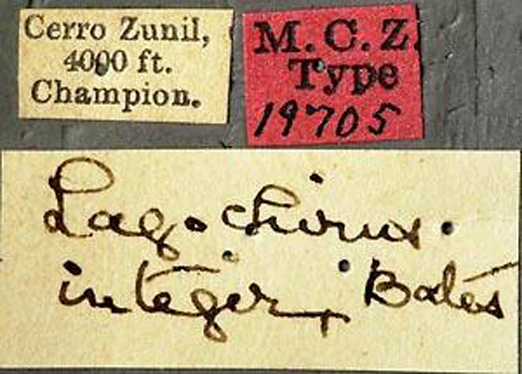 Cerro Zunil,
4000 ft.
Champion.
M.C.Z.
Type
19705
Lagochirus.
integer, Bates